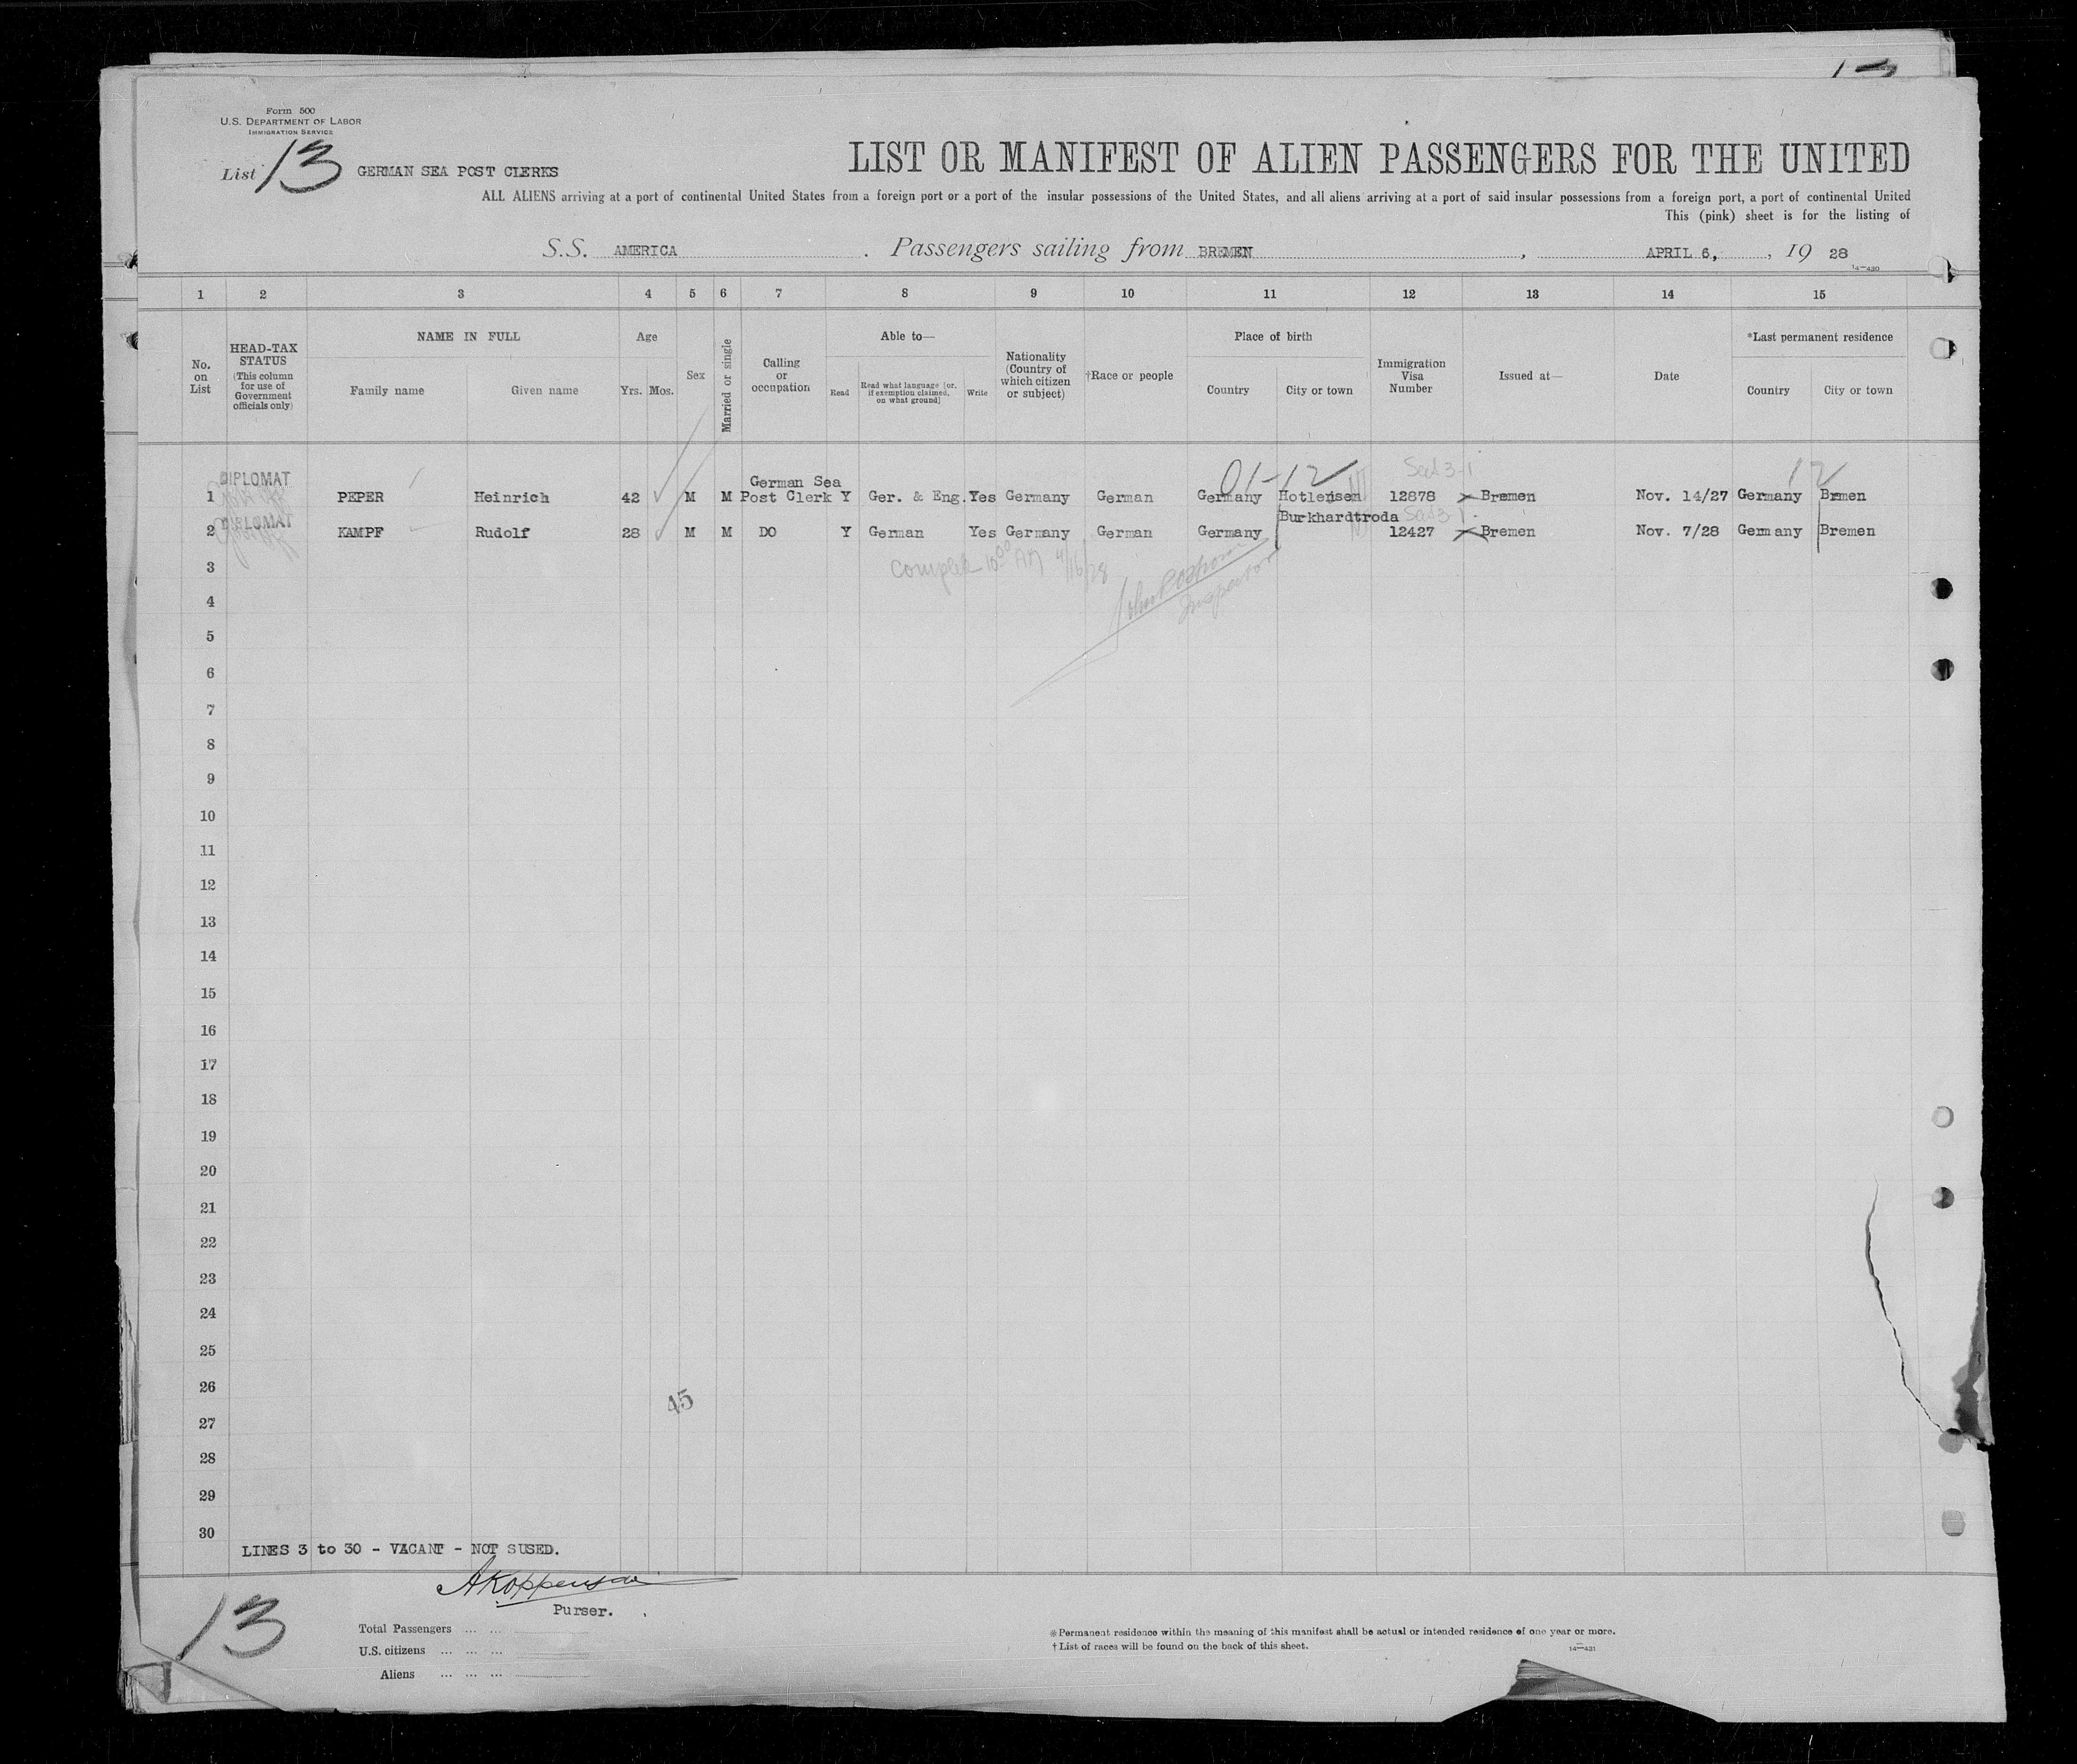 Form 500
U.S. DEPARTMENT OF LABOR
IMMIGRATION SERVICE
List 13 GERMAN SEA POST CLERKS
LIST OR MANIFEST OF ALIEN PASSENGERS FOR THE UNITED
ALL ALIENS arriving at a port of continental United States from a foreign port or a port of the insular possessions of the United States, and all aliens arriving at a port of said insular possessions from a foreign port, a port of continental United
This (pink) sheet is for the listing of
S.S. AMERICA . Passengers sailing from BREMEN , APRIL 6, , 19 28
14—430
1 2 3 4 5 6 7 8 9 10 11 12 13 14 15
No. on List
HEAD-TAX STATUS (This column for use of Government officials only)
NAME IN FULL
Family name Given name
Age
Yrs. Mos.
Sex
Married or single
Calling or occupation
Able to—
Read Read what language [or, if exemption claimed, on what ground] Write
Nationality (Country of which citizen or subject)
†Race or people
Place of birth
Country City or town
Immigration Visa Number
Issued at—
Date
*Last permanent residence
Country City or town
01-12 12
DIPLOMAT German Sea
1 PEPER Heinrich 42 M M Post Clerk Y Ger. & Eng. Yes Germany German Germany 12878 Bremen Nov. 14/27 Germany Brmen
DIPLOMAT Burkhardtroda
2 KAMPF Rudolf 28 M M DO Y German Yes Germany German Germany 12427 Bremen Nov. 7/28 Germany Bremen
10:00 AM 4/16/28
Inspector
3
4
5
6
7
8
9
10
11
12
13
14
15
16
17
18
19
20
21
22
23
24
25
26
45
27
28
29
30
LINES 3 to 30 - VACANT - NOT SUSED.
Purser.
13
Total Passengers ... ...
U.S. citizens ... ... ...
Aliens ... ... ...
*Permanent residence within the meaning of this manifest shall be actual or intended residence of one year or more.
†List of races will be found on the back of this sheet.
14—431